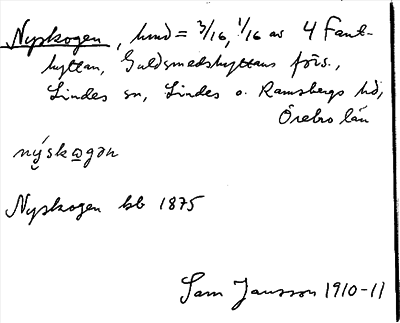 Nyskogen, hmd = 3/16, 1/16 av 4 Fant-
hyttan, Guldsmedshyttans förs.,
Lindes sn, Lindes o. Ramsbergs hd,
Örebro län
nýskogən
Nyskogen kb 1875
Sam Jansson 1910-11